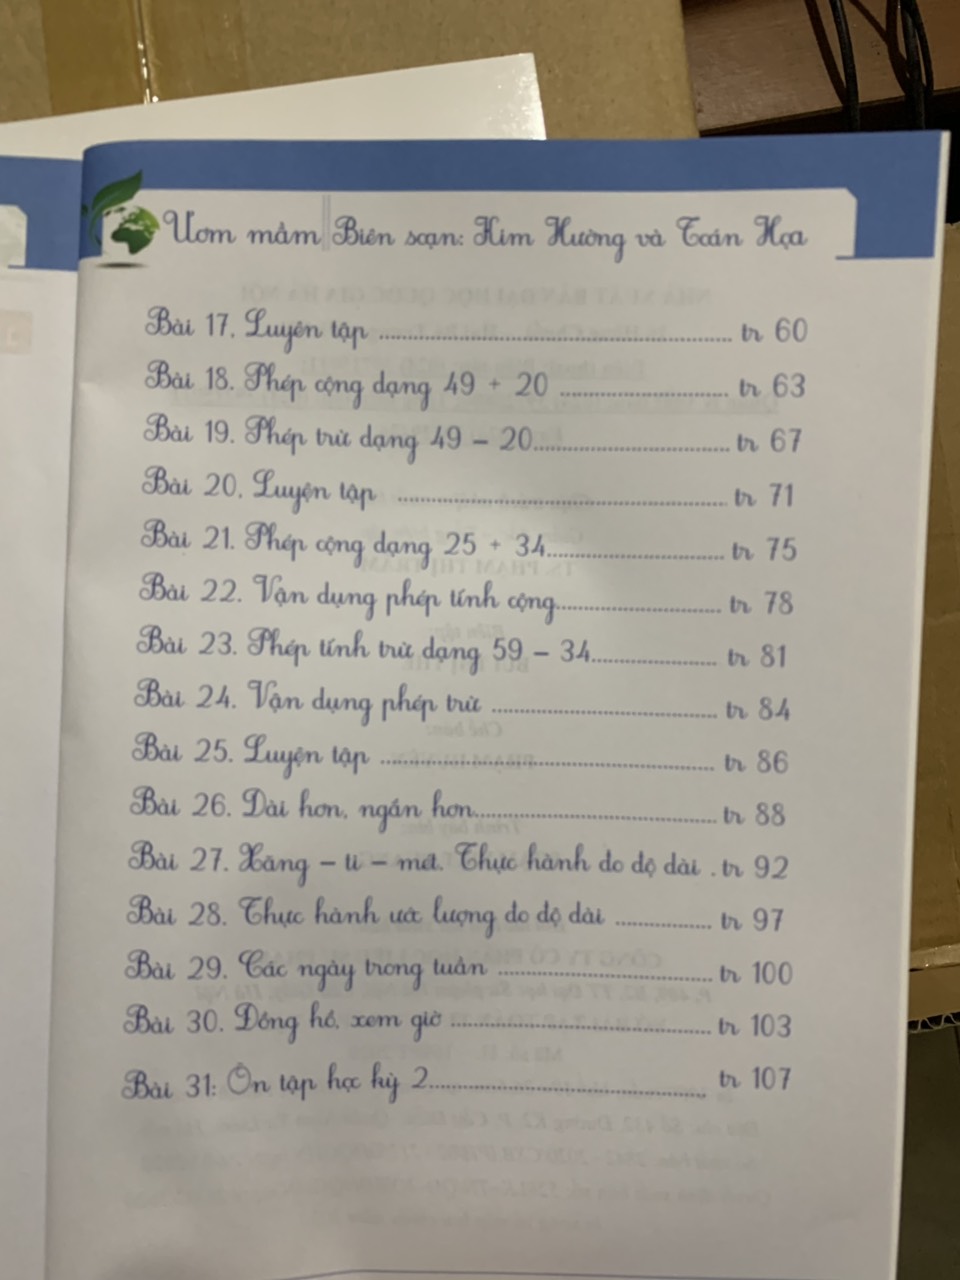 Ươm mầm Biên soạn: Kim Hường và Toán Họa
Bài 17. Luyện tập ........................ tr 60
Bài 18. Phép cộng dạng 49 + 20 ............ tr 63
Bài 19. Phép trừ dạng 49 – 20.............. tr 67
Bài 20. Luyện tập ........................ tr 71
Bài 21. Phép cộng dạng 25 + 34............. tr 75
Bài 22. Vận dụng phép tính cộng............ tr 78
Bài 23. Phép tính trừ dạng 59 – 34......... tr 81
Bài 24. Vận dụng phép trừ ................. tr 84
Bài 25. Luyện tập ........................ tr 86
Bài 26. Dài hơn, ngắn hơn.................. tr 88
Bài 27. Xăng – ti – mét. Thực hành đo độ dài . tr 92
Bài 28. Thực hành ước lượng đo độ dài ...... tr 97
Bài 29. Các ngày trong tuần ............... tr 100
Bài 30. Đồng hồ, xem giờ .................. tr 103
Bài 31: Ôn tập học kỳ 2.................... tr 107